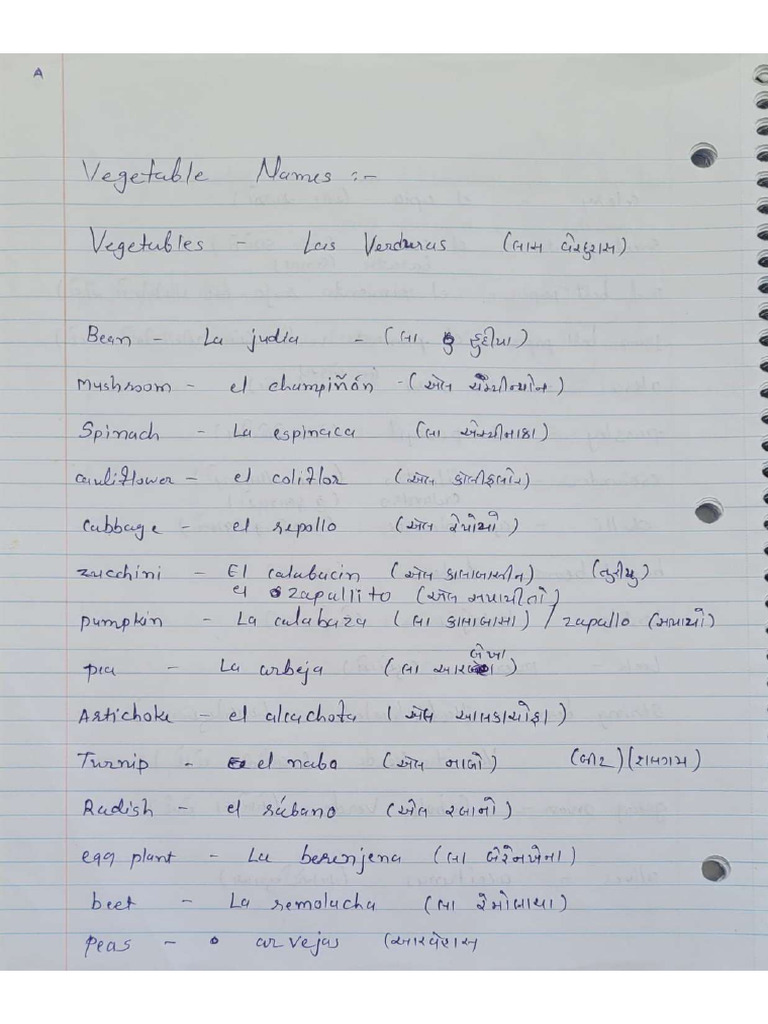 A
Vegetable Names :-
Vegetables - Las Verduras (લાસ વેરદુરાસ)
Bean - La judia - (લા હુદીયા)
Mushroom - el champiñón - (એલ ચેમ્પીન્યોન)
Spinach - La espinaca (લા એસ્પીનાકા)
cauliflower - el coliflor (એલ કોલીફ્લોર)
Cabbage - el repollo (એલ રેપોયો)
zucchini - El calabacin (એલ કાલાબાસીન) (તુરીયુ)
el zapallito (એલ સપાયીતો)
pumpkin - La calabaza (લા કાલાબાસા) / zapallo (સપાયો)
pea - La arbeja (લા આરબેખા)
Artichoke - el alcachofa (એલ આલકાચોફા)
Turnip - el nabo (એલ નાબો) (બીટ) (શલગમ)
Radish - el rábano (એલ રબાનો)
egg plant - La berenjena (લા બેરેનખેના)
beet - La remolacha (લા રેમોલાચા)
peas - arvejas (આરવેહાસ